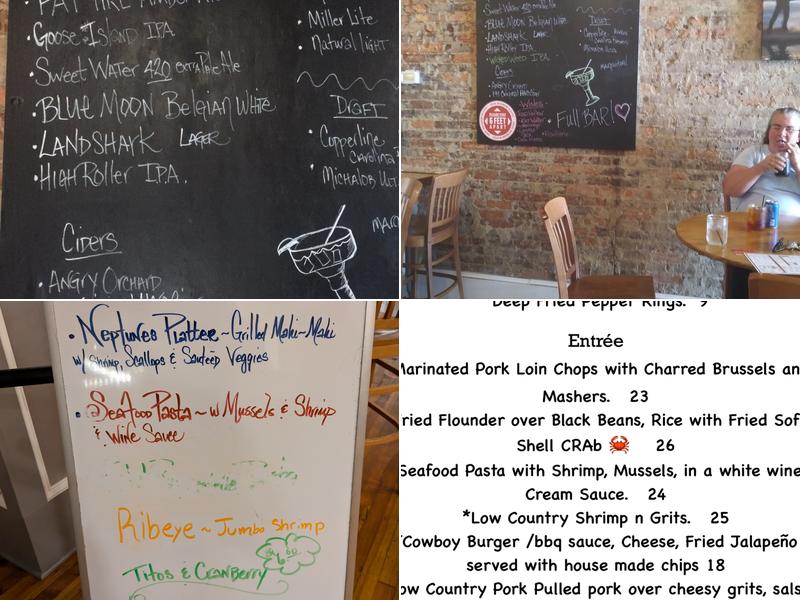 FAT TIRE AMBER
• Goose Island IPA
• Sweet Water 420 extra Pale Ale
• BLUE MOON Belgian White
• LANDSHARK LAGER
• HIGH Roller I.P.A.
Ciders
• ANGRY ORCHARD
Miller Lite
• Natural light
DRAFT
• Copperline
Carolina
• MICHALOB ULT
Sweet Water 420
BLUE MOON Belgian White
LANDSHARK LAGER
HIGH Roller IPA
Ciders
ANGRY ORCHARD
DRAFT
6 FEET
APART
Full BAR!
• Neptunes Platter ~ Grilled Mahi-Mahi
w/ Shrimp, Scallops & Sauteed Veggies
• Seafood Pasta ~ w Mussels & Shrimp
& Wine Sauce
Ribeye ~ Jumbo Shrimp
Titos & Cranberry
Deep Fried Pepper Rings. 9
Entrée
Marinated Pork Loin Chops with Charred Brussels an
Mashers. 23
ried Flounder over Black Beans, Rice with Fried Sof
Shell CRAb 🦀 26
Seafood Pasta with Shrimp, Mussels, in a white wine
Cream Sauce. 24
*Low Country Shrimp n Grits. 25
Cowboy Burger /bbq sauce, Cheese, Fried Jalapeño
served with house made chips 18
ow Country Pork Pulled pork over cheesy grits, sals